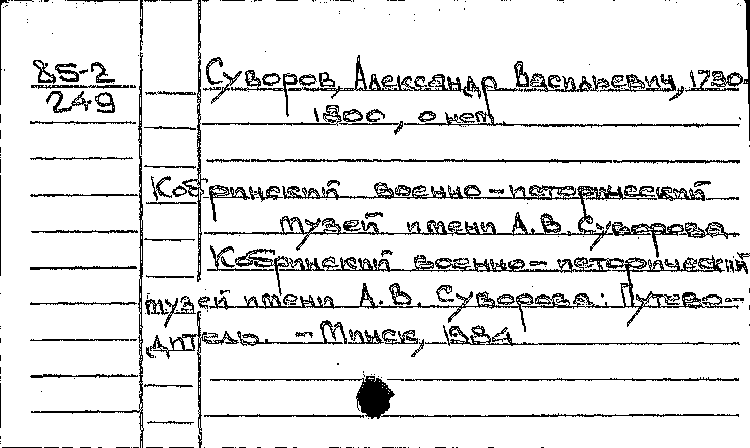 85-2
249
Суворов, Александр Васильевич, 1730-
1800, о нем.
Кобринский военно-исторический
музей имени А.В. Суворова
Кобринский военно-исторический
музей имени А.В. Суворова: Путево-
дитель. - Минск, 1984